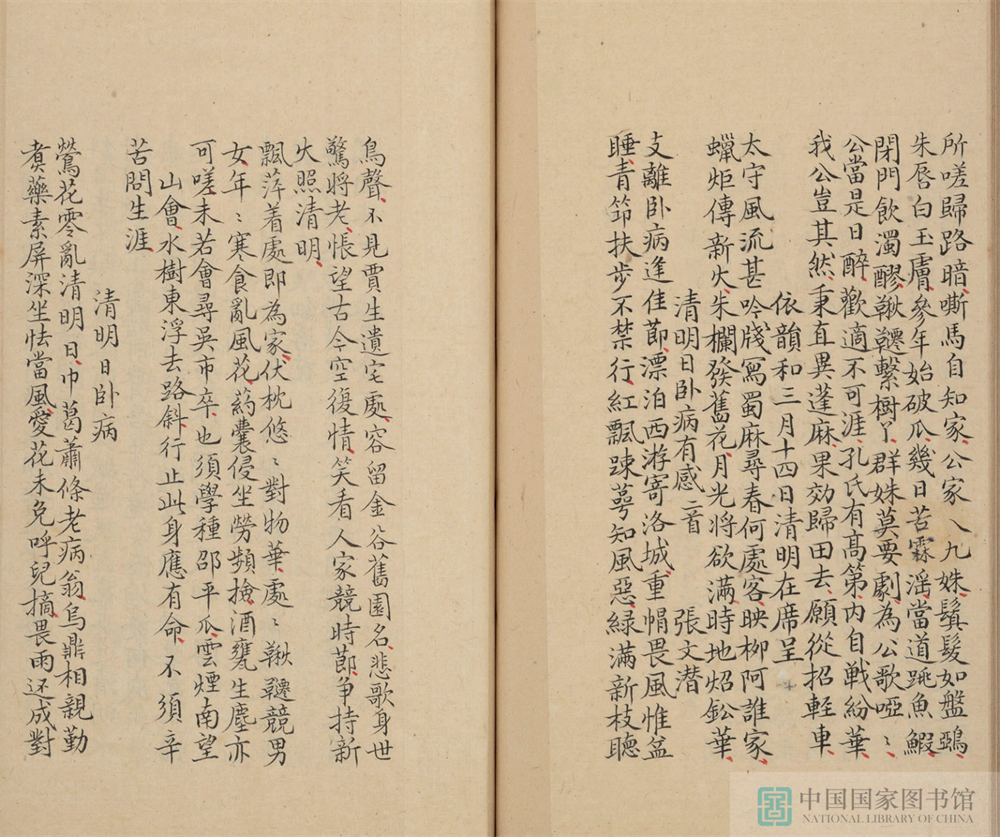 所嗟歸路暗嘶馬自知家公家八九姝鬒髮如盤鵶
朱唇白玉膚參年始破瓜幾日苦霖滛當道跳魚鰕
閉門飲濁醪鞦韆繫樹丫群姝莫要劇為公歌啞〻
公當是日醉歡適不可涯孔氏有高第內自戰紛華
我公豈其然秉直異蓬麻果効歸田去願從招輊車
依韻和三月十四日清明在席呈
太守風流甚吟牋寫蜀麻尋春何處客映柳阿誰家
蠟炬傳新火朱欄發舊花月光將欲滿時地炤鈆華
清明日卧病有感二首 張文潜
支離卧病逢佳莭漂泊西游寄洛城重帽畏風惟益
睡青笻扶步不禁行紅飄踈萼知風惡綠滿新枝聽
鳥聲不見賈生遺宅處容留金谷舊園名悲歌身世
驚將老悵望古今空復情笑看人家競時莭争持新
火照清明
飄萍着處即為家伏枕悠〻對物華處〻鞦韆競男
女年〻寒食亂風花葯囊侵坐勞頻撿酒甕生塵亦
可嗟未若會尋吳市卒也須學種邵平瓜雲煙南望
山會水樹東浮去路斜行止此身應有命不須辛
苦問生涯
清明日卧病
鶯花零亂清明日巾葛蕭條老病翁烏鼎相親勤
煑藥素屏深坐怯當風愛花未免呼兒摘畏雨还成對
中国国家图书馆
NATIONAL LIBRARY OF CHINA